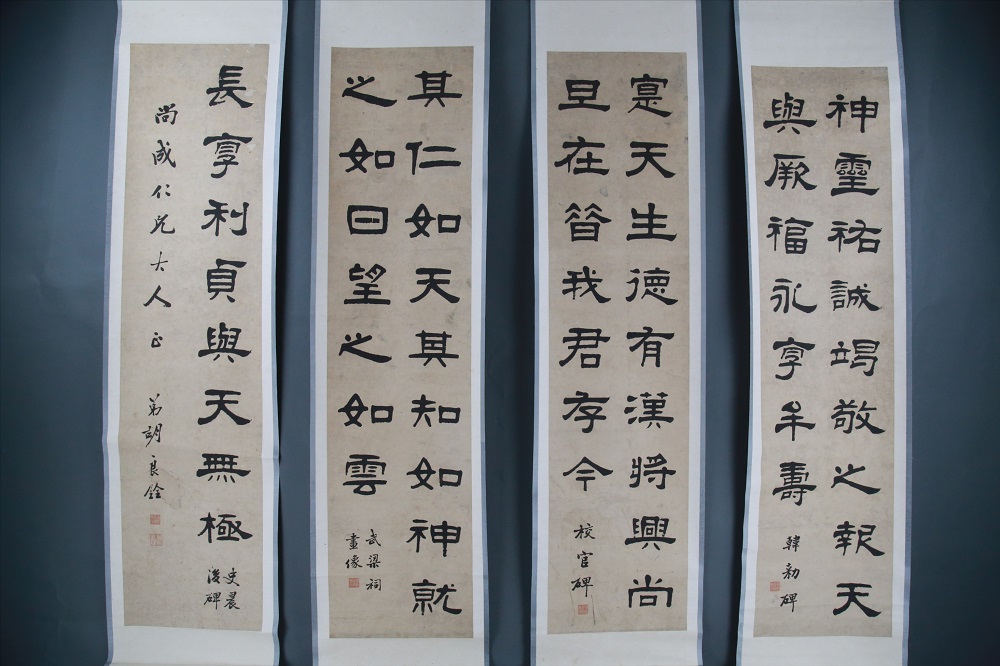 神靈祐誠竭敬之報天
與厥福永享牟壽
韓勑碑
寔天生德有漢將興尚
旦在昔我君存今
校官碑
其仁如天其知如神就
之如日望之如雲
武梁祠
畫像
長享利貞與天無極
史晨
後碑
尚成仁兄大人正
弟胡良銓